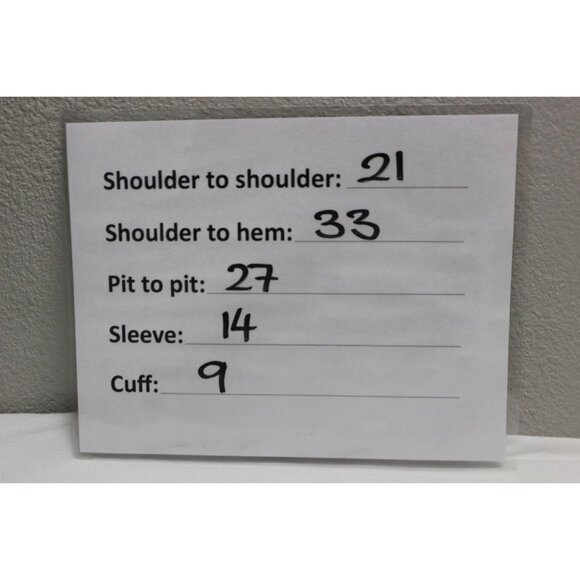 Shoulder to shoulder: 21
Shoulder to hem: 33
Pit to pit: 27
Sleeve: 14
Cuff: 9